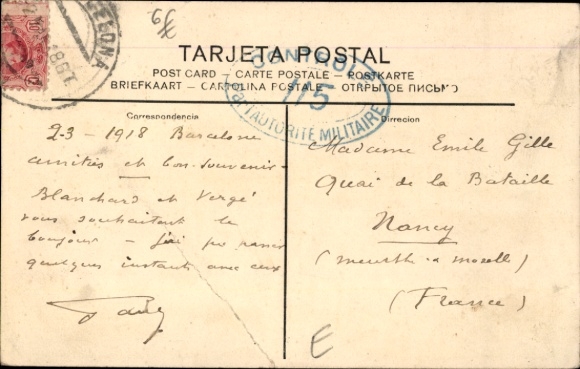 66
CELONA
TARJETA POSTAL
POST CARD — CARTE POSTALE — POSTKARTE
BRIEFKAART — CARTOLINA POSTALE — ОТКРЫТОЕ ПИСЬМО
CONTROLE
115
PAR L'AUTORITÉ MILITAIRE
Correspondencia
Direccion
23 - 1918 Barcelone
amitiés et bon souvenir
Blanchard et Vergé
vous souhaitent le
bonjour - j'ai pu passer
quelques instants avec eux
Madame Emile Gille
Quai de la Bataille
Nancy
(Meurthe & Moselle)
(France)
E